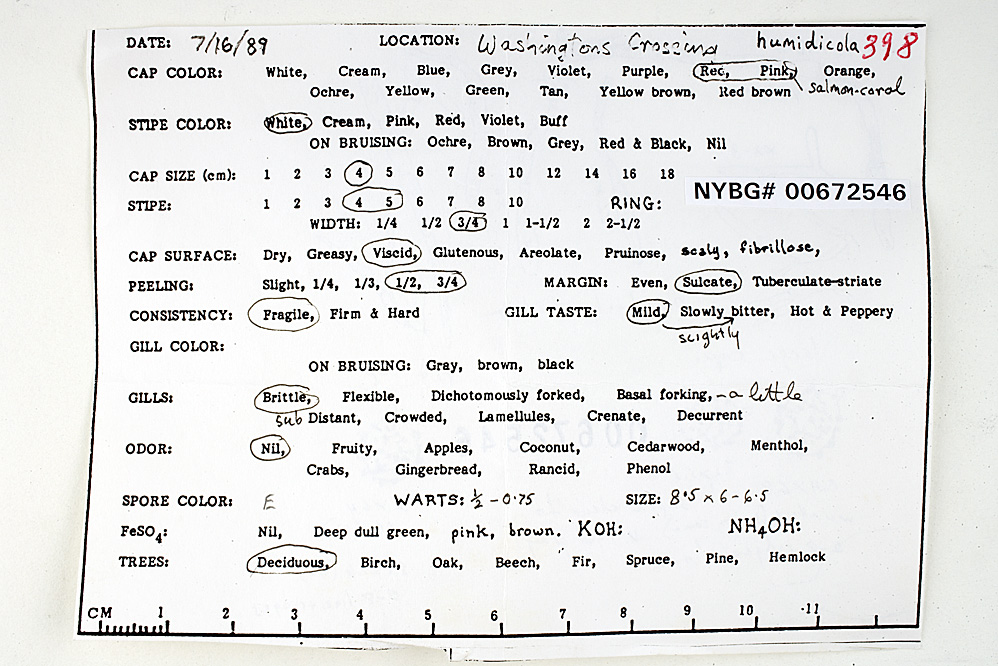 DATE: 7/16/89 LOCATION: Washingtons Crossing humidicola 398
CAP COLOR: White, Cream, Blue, Grey, Violet, Purple, Red, Pink, Orange,
Ochre, Yellow, Green, Tan, Yellow brown, Red brown salmon-coral
STIPE COLOR: White, Cream, Pink, Red, Violet, Buff
ON BRUISING: Ochre, Brown, Grey, Red & Black, Nil
CAP SIZE (cm): 1 2 3 4 5 6 7 8 10 12 14 16 18
NYBG# 00672546
STIPE: 1 2 3 4 5 6 7 8 10 RING:
WIDTH: 1/4 1/2 3/4 1 1-1/2 2 2-1/2
CAP SURFACE: Dry, Greasy, Viscid, Glutenous, Areolate, Pruinose, scaly, fibrillose,
PEELING: Slight, 1/4, 1/3, 1/2, 3/4 MARGIN: Even, Sulcate, Tuberculate-striate
CONSISTENCY: Fragile, Firm & Hard GILL TASTE: Mild, Slowly bitter, Hot & Peppery
slightly
GILL COLOR:
ON BRUISING: Gray, brown, black
GILLS: Brittle, Flexible, Dichotomously forked, Basal forking, - a little
sub Distant, Crowded, Lamellules, Crenate, Decurrent
ODOR: Nil, Fruity, Apples, Coconut, Cedarwood, Menthol,
Crabs, Gingerbread, Rancid, Phenol
SPORE COLOR: E WARTS: ½ - 0.75 SIZE: 8.5 x 6 - 6.5
FeSO4: Nil, Deep dull green, pink, brown. KOH: NH4OH:
TREES: Deciduous, Birch, Oak, Beech, Fir, Spruce, Pine, Hemlock
CM 1 2 3 4 5 6 7 8 9 10 11